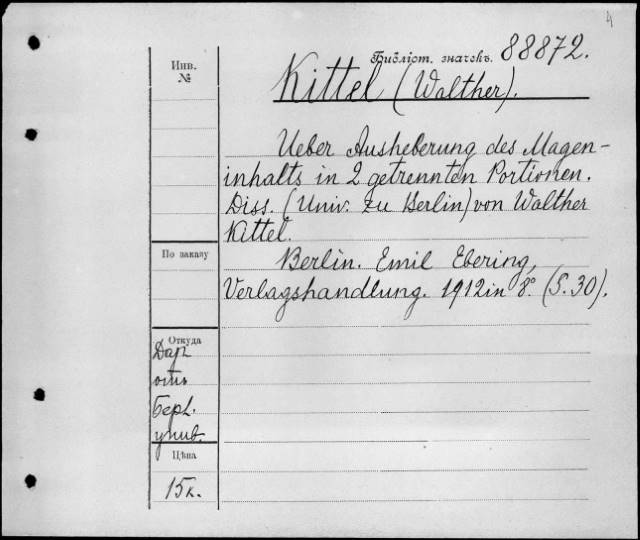 4
Библіот. значекъ. 88872.
Инв.
№
Kittel (Walther).
Ueber Ausheberung des Magen-
inhalts in 2 getrennten Portionen.
Diss. (Univ. zu Berlin) von Walther
Kittel.
По заказу
Berlin. Emil Ebering,
Verlagshandlung. 1912 in 8º. (S. 30).
Откуда
Даръ
отъ
Берл.
унив.
Цѣна
15к.